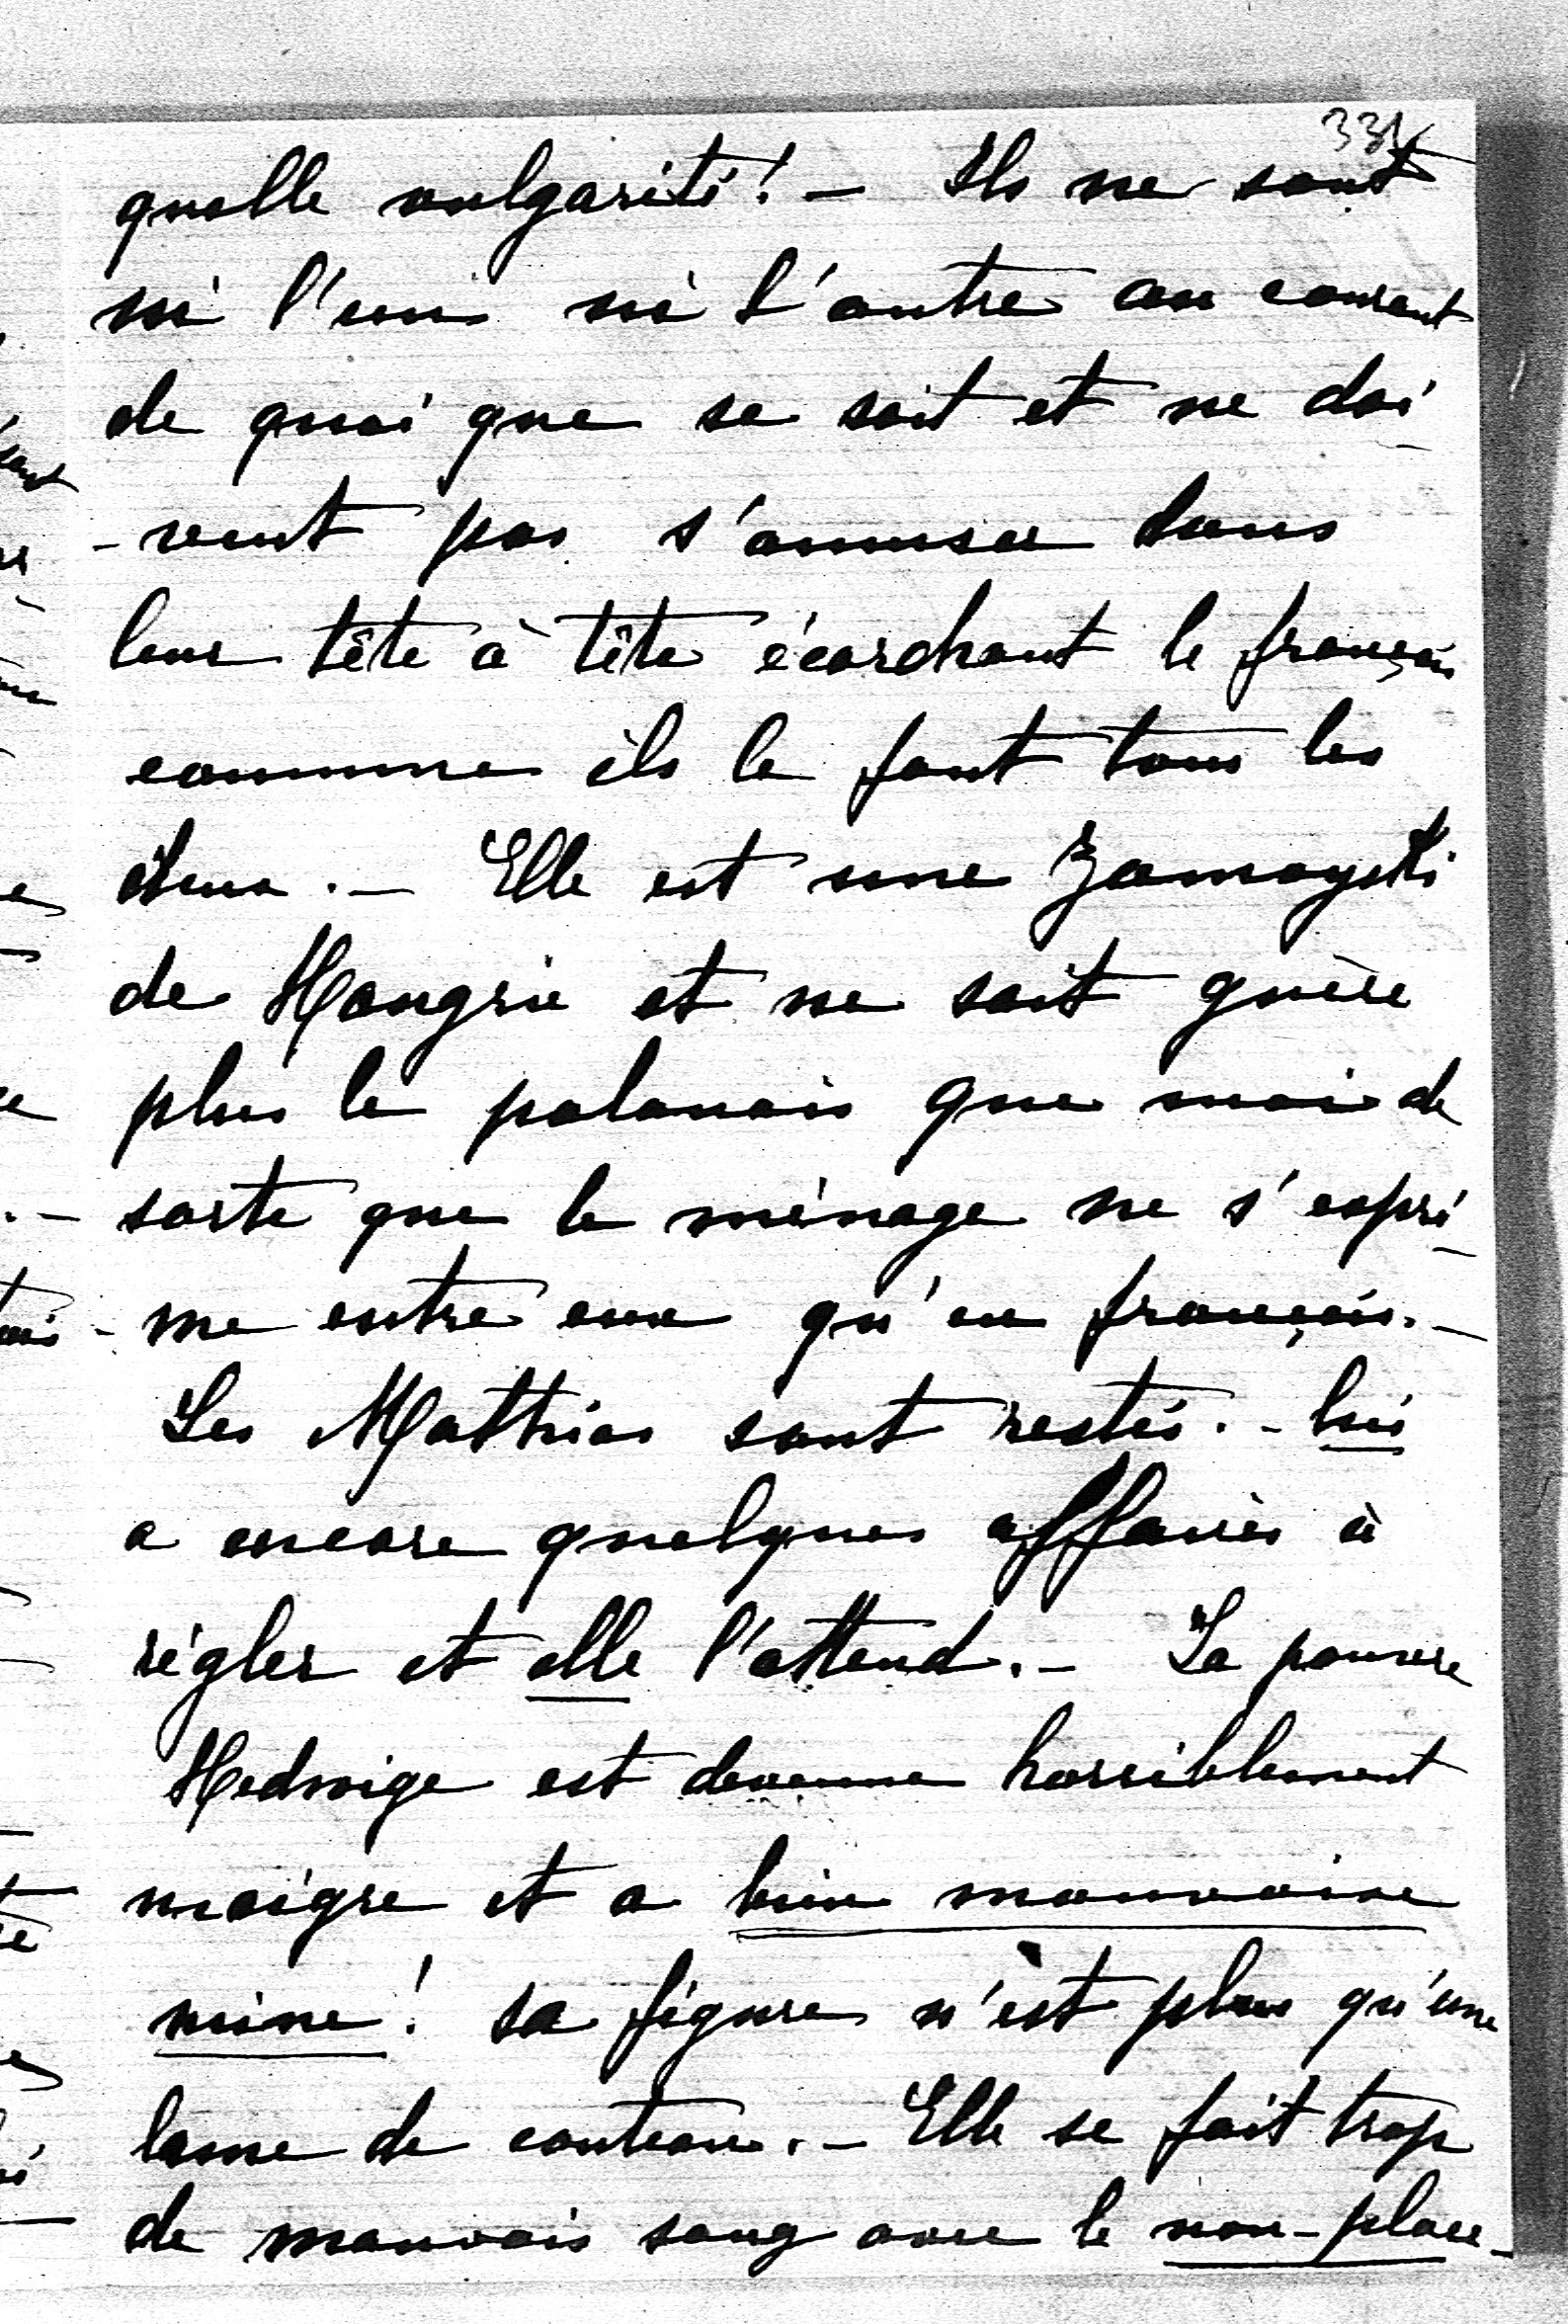 331
quelle vulgarité! – Ils ne sont
ni l'un ni l'autre au courant
de quoi que se soit et ne doi
-vent pas s'amuser dans
leur tête à tête écorchant le français
comme ils le font tous les
deux. – Elle est une Zamoyski
de Hongrie et ne sait guère
plus le polonais que moi de
sorte que le ménage ne s'expri
-me entre eux qu'en français. –
Les Mathias sont restés. – lui
a encore quelques affaires à
régler et elle l'attend. – La pauvre
Hedwige est devenue horriblement
maigre et a bien mauvaise
mine! sa figure n'est plus qu'une
lame de couteau. – Elle se fait trop
de mauvais sang avec le non-place-